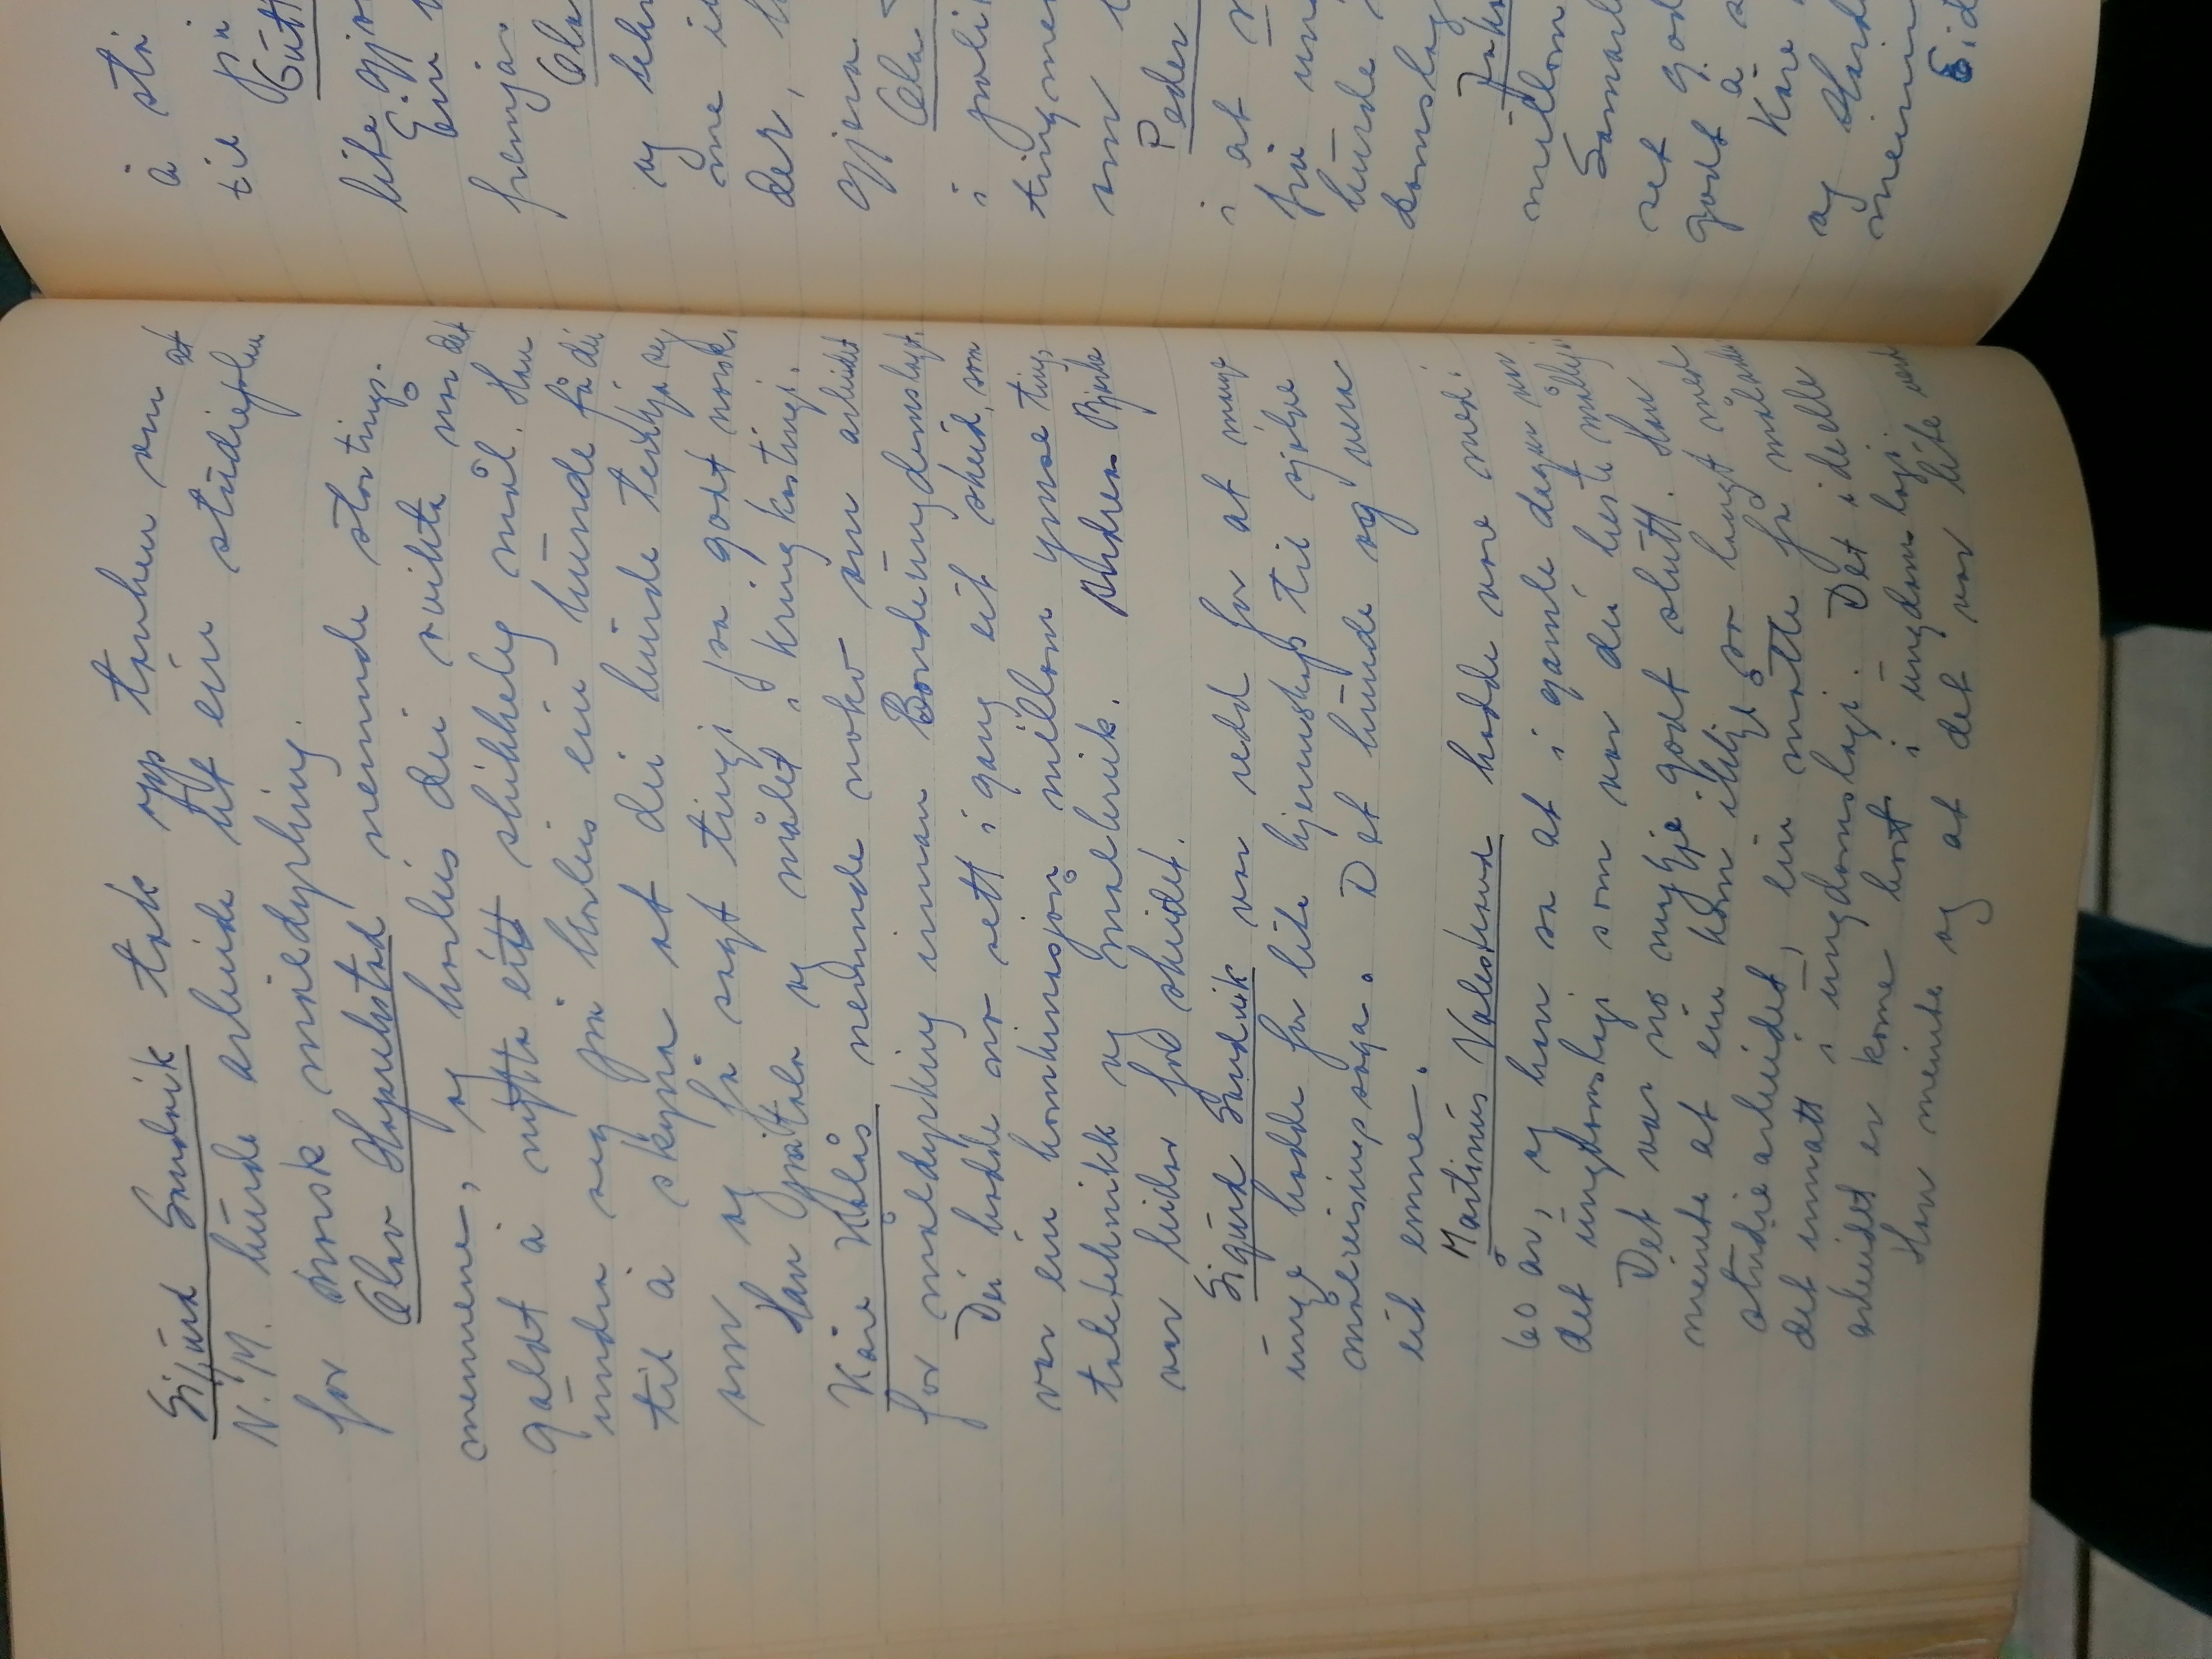 Sigurd Sandvik tok upp tanken om at
N.M. burde arbeida ut ein studieplan
for norsk måldyrking.
Olav Hapnestad nemnde stortings-
mennene, og korleis dei svikta når det
galdt å nytta eitt skikkeleg mål. Han
undra seg på korleis ein kunde få dei
til å skyna at dei burde tenkja seg
om og få sagt tingi på godt norsk.
Han påtala og målet i kringkastingi.
Kåre Hålis nemnde noko om arbeidet
for måldyrking innan Bondeungdomslaget.
Dei hadde no sett i gang eit skeid, som
var ein kombinasjon millom ymse ting,
taleteknikk og målbruk. Andres Bjerke
var leidar for skeidet.
Sigurd Sandvik var redd for at mange
unge hadde for lite kjennskap til sjølve
målreisingssoga. Det kunde og vera
eit emne.
Martinus Valestrand hadde vore med i
60 år, og han sa at i gamle dagar var
det ungdomslagi som var dei beste mållagi.
Det var no mykje godt slutt. Han
meinte at ein kom ikkje so langt med
studiearbeidet, ein måtte få målarbei-
det innatt i ungdomslagi. Det ideelle
arbeidet er kome bort i ungdomslagi.
Han meinte og at det var lite
å sta
til på
Gutt
lite gjo
Ein
fremja
Ola
og
me i
der,
gjera
Ola
i poli
tingme
om
Peder
i at
på un
burde
domslag
Jako
millom
Samarb
set god
godt å
Kåre
og Hard
meinin
Eid